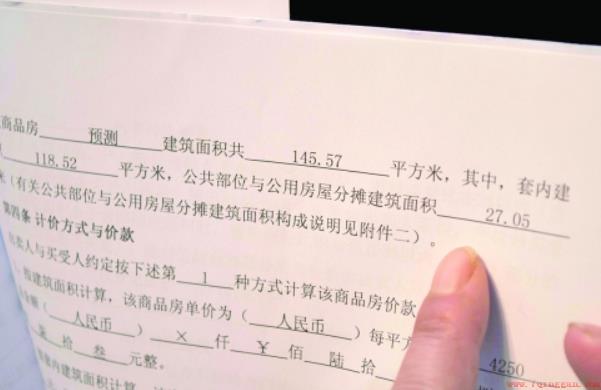 商品房 预测 建筑面积共 145.57 平方米，其中，套内建
118.52 平方米，公共部位与公用房屋分摊建筑面积 27.05
米（有关公共部位与公用房屋分摊建筑面积构成说明见附件二）。
第四条 计价方式与价款
出卖人与买受人约定按下述第 1 种方式计算该商品房价款
按建筑面积计算，该商品房单价为（ 人民币 ）每平方
金额（ 人民币 ） × 仟 ￥ 佰 陆 拾 4250
柒 拾 叁 元整。
内建筑面积计算